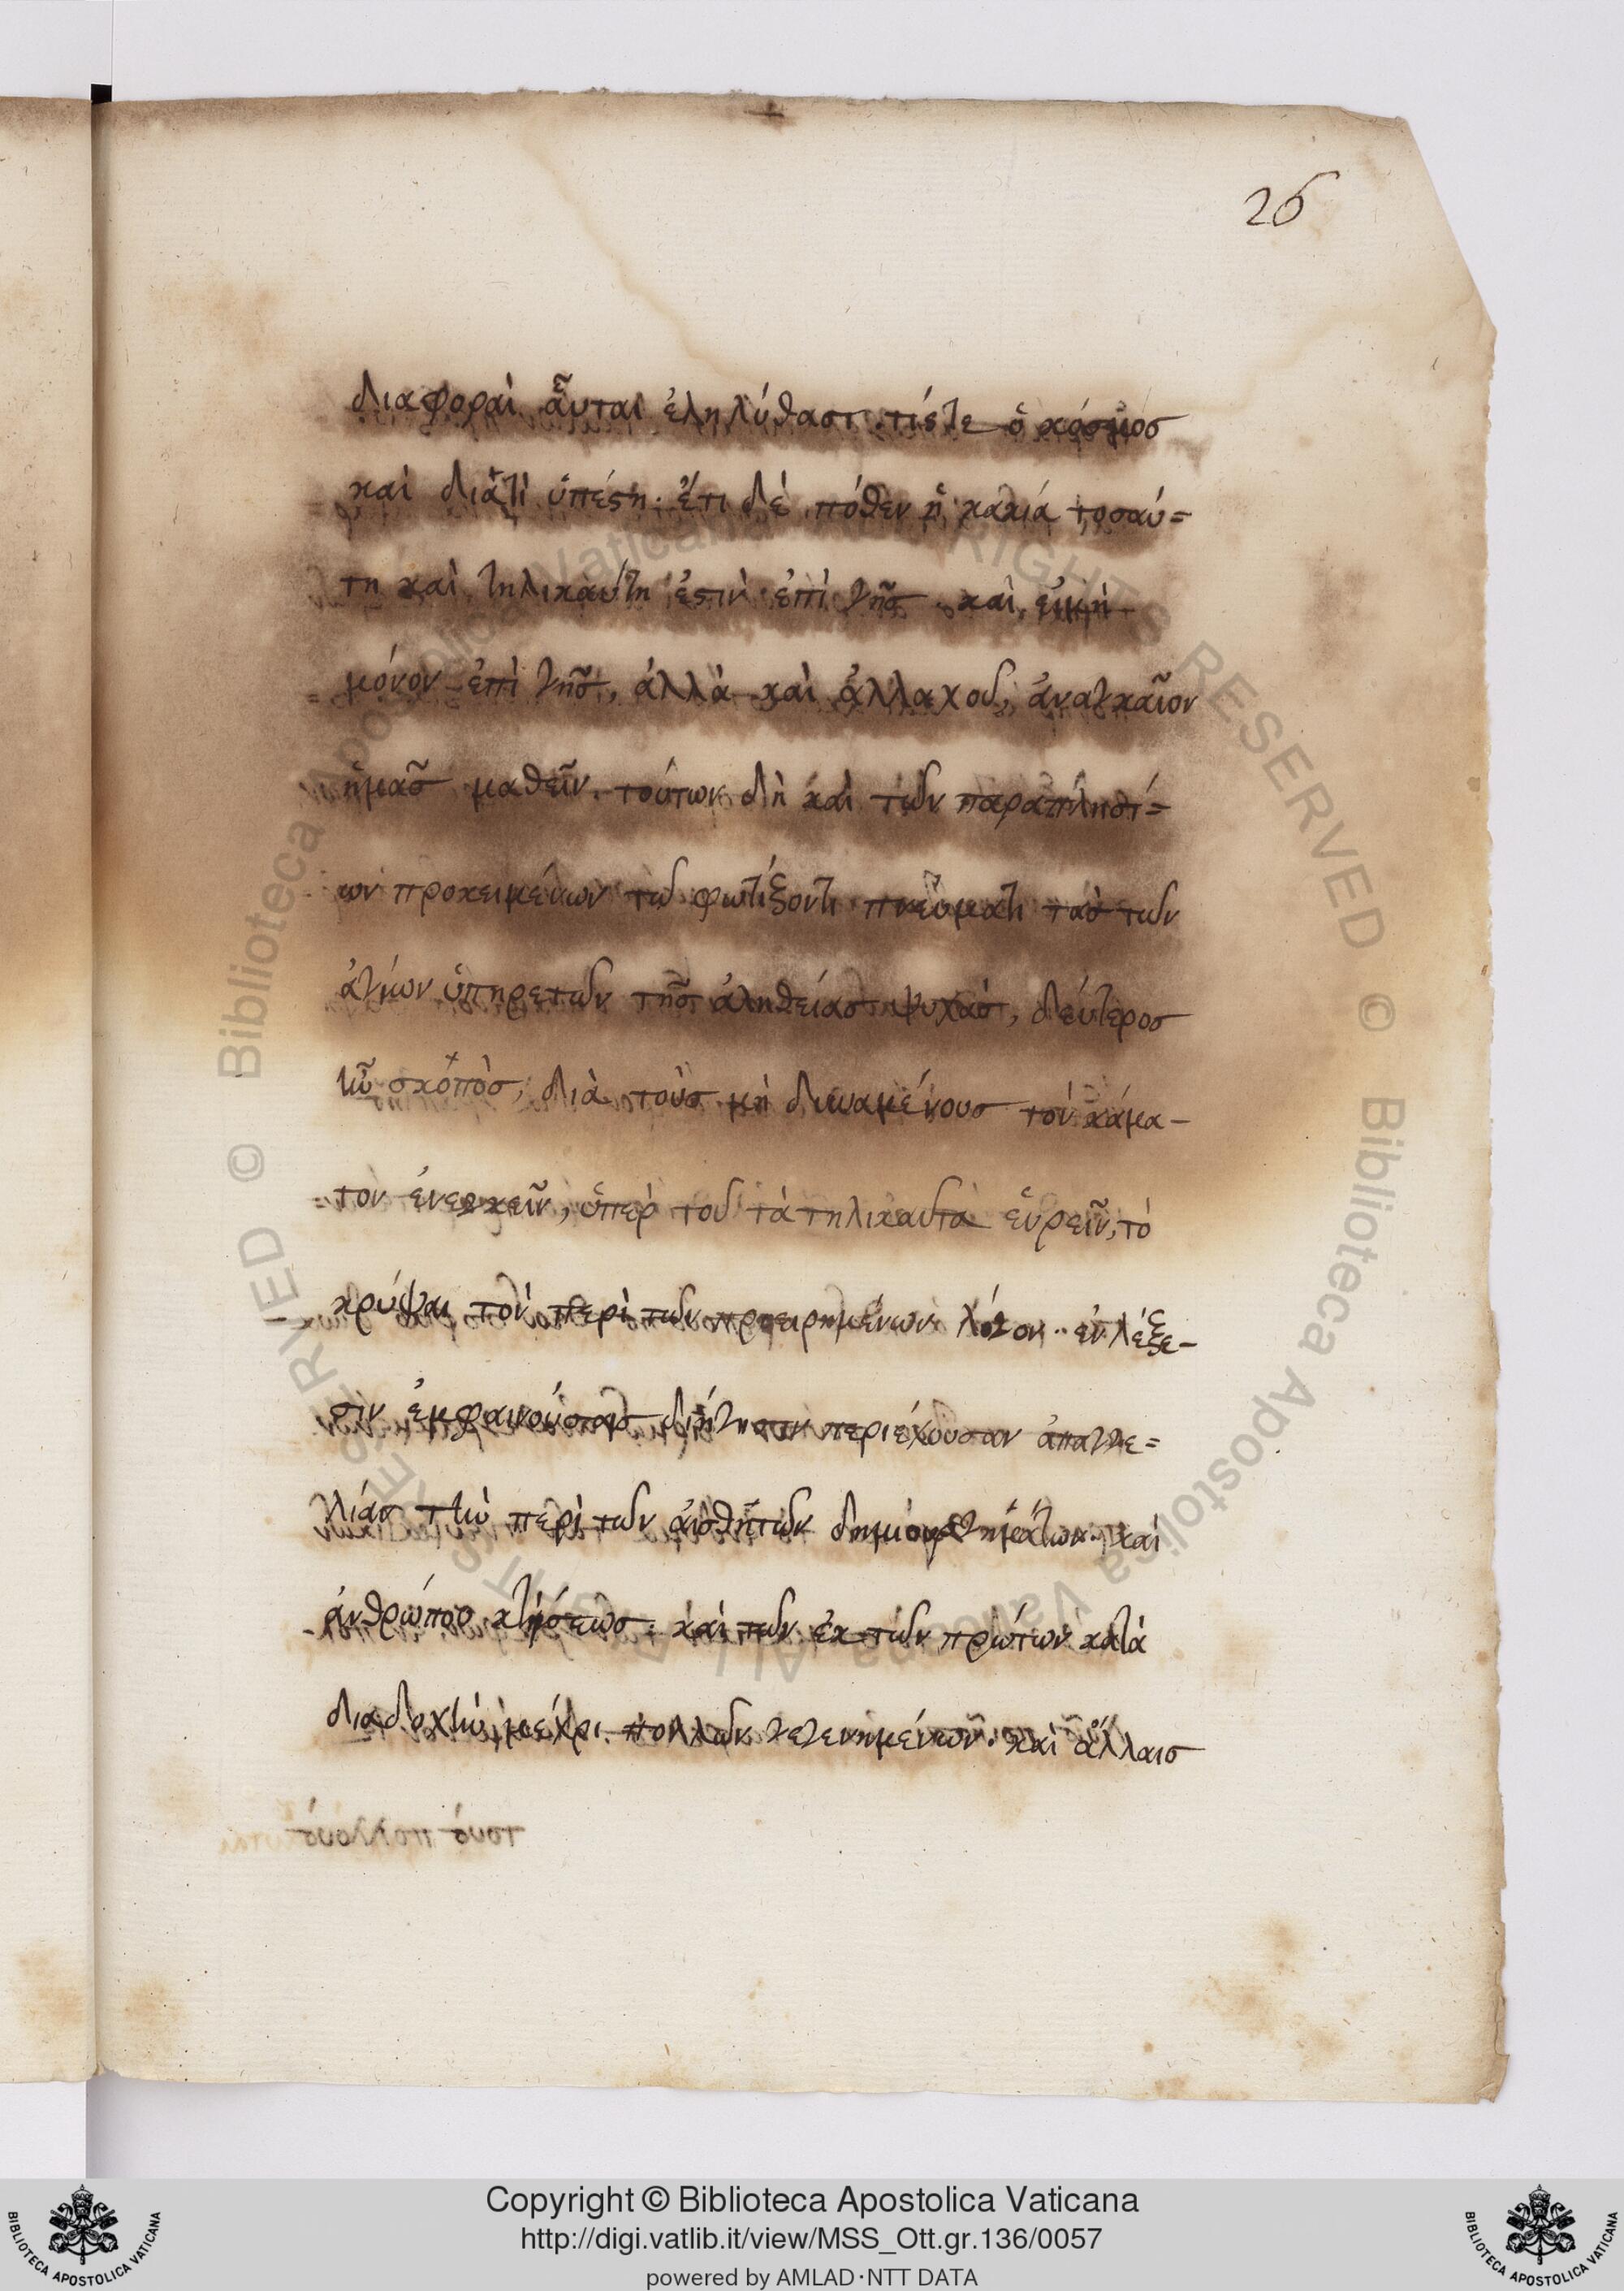 26
διαφοραὶ αὗται ἐληλύθασι. τίς τε ὁ κόσμος
καὶ διατί ὑπέστη. ἔτι δὲ πόθεν ἡ κακία τοσαύ=
τη καὶ τηλικαύτη ἐστὶν ἐπὶ γῆς. καὶ εἰ μὴ
μόνον ἐπὶ γῆς, ἀλλὰ καὶ ἀλλαχοῦ, ἀναγκαῖον
ἡμᾶς μαθεῖν. τούτων δὴ καὶ τῶν παραπλησί=
ων προκειμένων τῷ φωτίζοντι πνεύματι τὰς τῶν
ἁγίων ὑπηρετῶν τῆς ἀληθείας ψυχὰς, δεύτερος
ἦν σκόπὸς, διὰ τοὺς μὴ δυναμένους τὸν κάμα-
τον ἐνεγκεῖν, ὑπὲρ τοῦ τὰ τηλικαῦτα εὑρεῖν, τὸ
κρύψαι τὸν περὶ τῶν προειρημένων λόγον. ἐν λέξε-
σιν ἐμφαινούσαις διήγησιν περιέχουσαν ἀπαγγε=
λίαν τὴν περὶ τῶν αἰσθητῶν δημιουργημάτων. καὶ
ἀνθρώπου κτίσεως. καὶ τῶν ἐκ τῶν πρώτων κατὰ
διαδοχὴν μέχρι πολλῶν γεγενημένων. καὶ ἄλλαις
τοὺς πολλοὺς
Copyright © Biblioteca Apostolica Vaticana
http://digi.vatlib.it/view/MSS_Ott.gr.136/0057
powered by AMLAD·NTT DATA
BIBLIOTECA APOSTOLICA VATICANA
BIBLIOTECA APOSTOLICA VATICANA